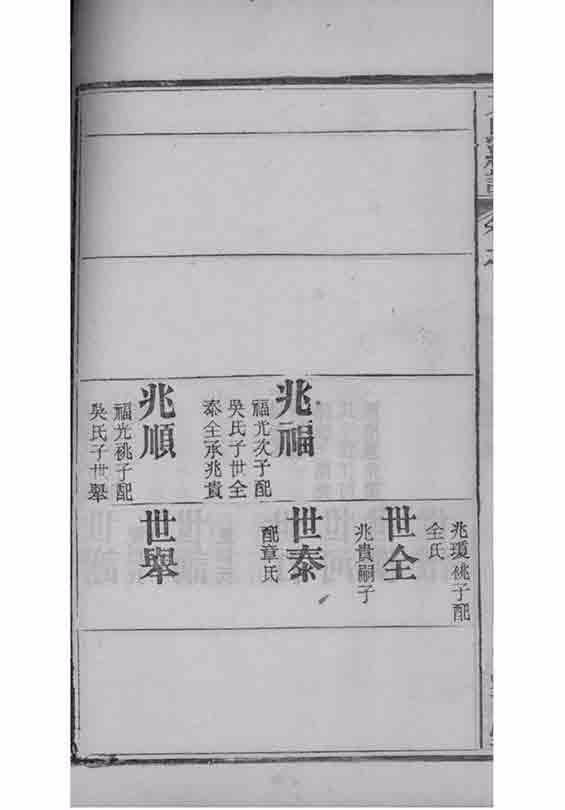 兆福
福光次子配
吳氏子世全
泰全承兆貴
兆順
福光祧子配
吳氏子世舉
兆瓊祧子配
全氏
世全
兆貴嗣子
世泰
配章氏
世舉